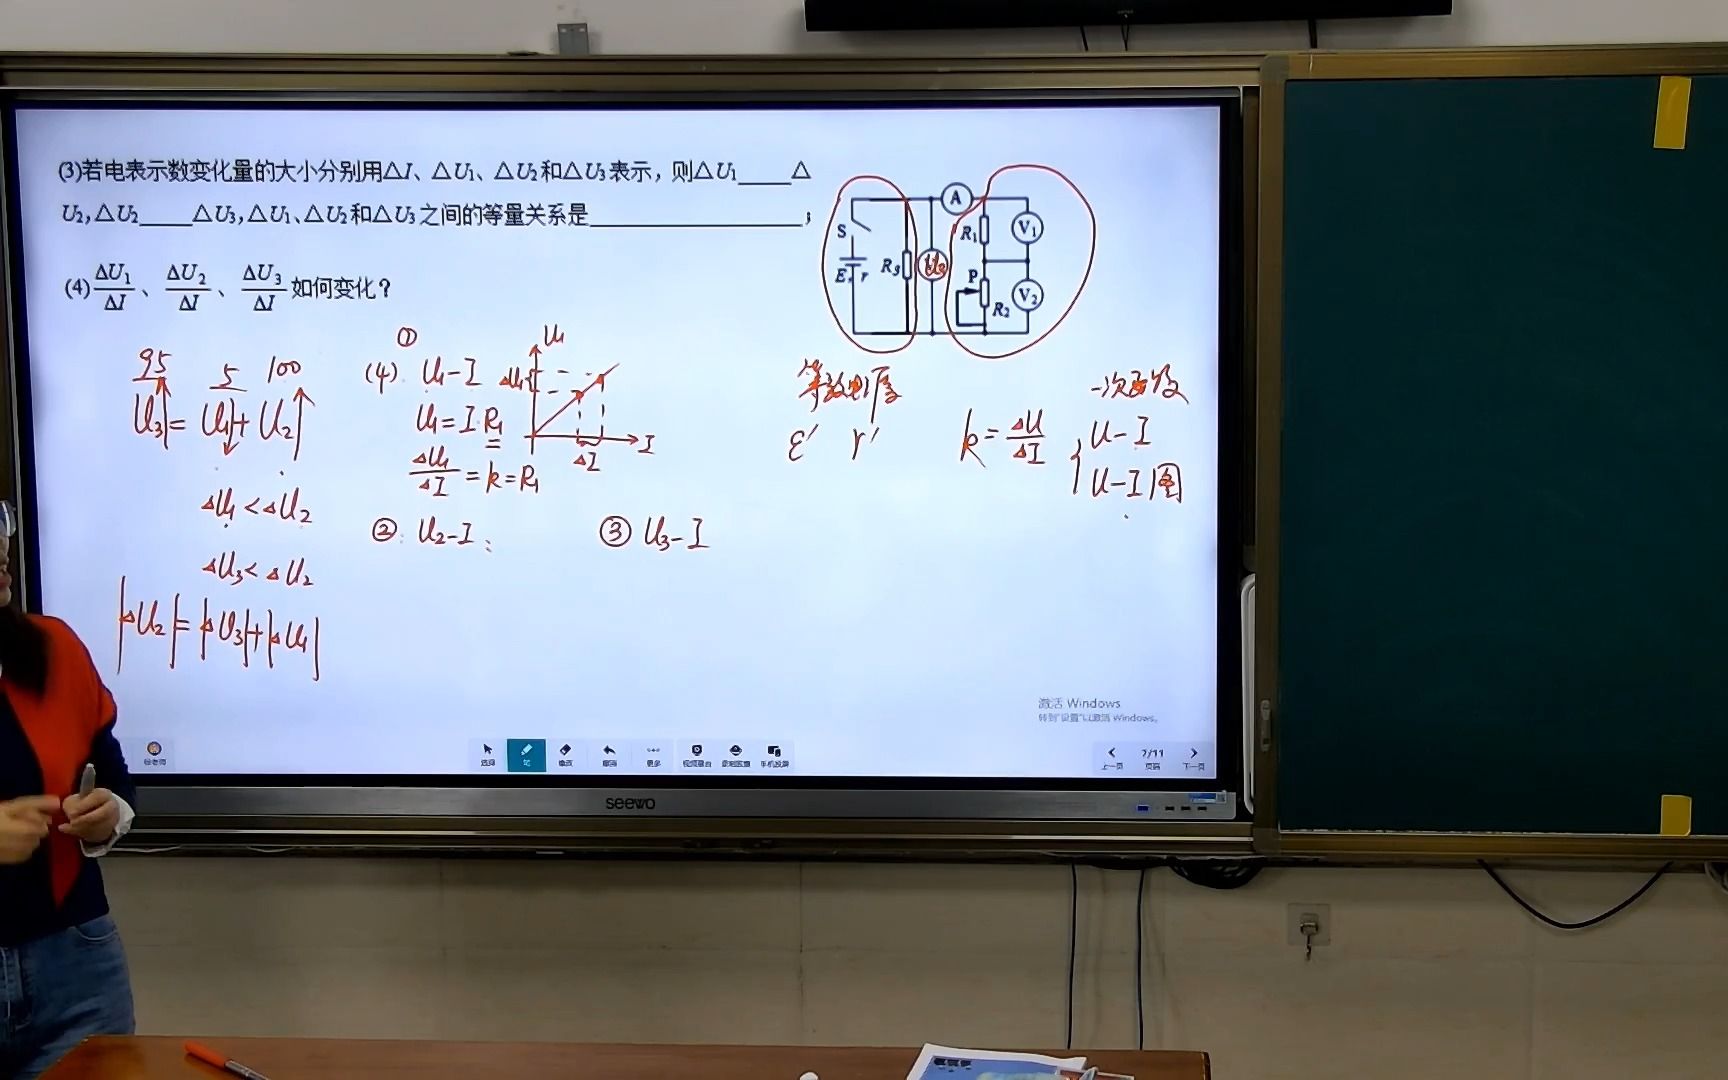 (3)若电表示数变化量的大小分别用△I、△U₁、△U₂和△U₃表示，则△U₁____△
U₂,△U₂____△U₃,△U₁、△U₂和△U₃之间的等量关系是________________；
(4)ΔU₁/ΔI、ΔU₂/ΔI、ΔU₃/ΔI如何变化？
S
E, r
R₃
A
R₁
V₁
P
R₂
V₂
95 5 100
U₃=U₁+U₂
△U₁<△U₂
△U₃<△U₂
|△U₂|=|△U₃|+|△U₁|
(4). ① U₁-I
U₁=I·R₁
△U₁/△I=k=R₁
U₁
△U₁
△I
I
② U₂-I:
③ U₃-I
等效电源
ε′ r′
一次函数
k=△U/△I
U-I
U-I图
激活 Windows
转到"设置"以激活 Windows。
选择
笔
更多
手机投屏
上一页
2/11
页码
下一页
seewo